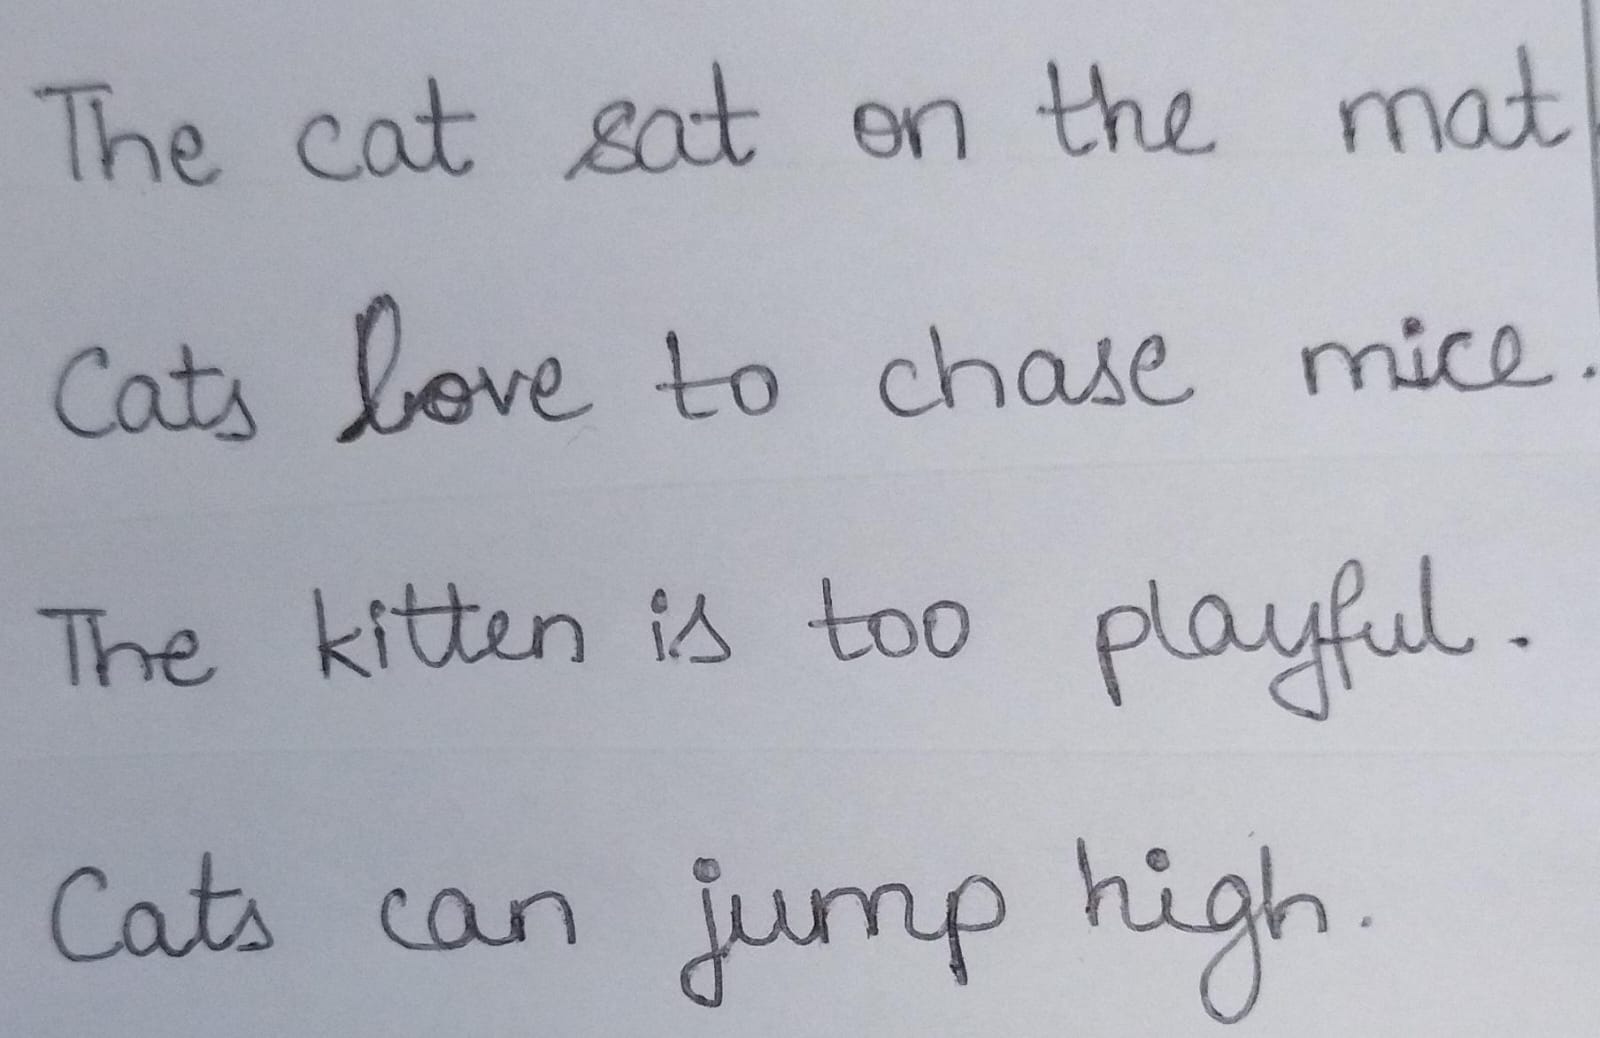 The cat sat on the mat.
Cats love to chase mice.
The kitten is too playful.
Cats can jump high.